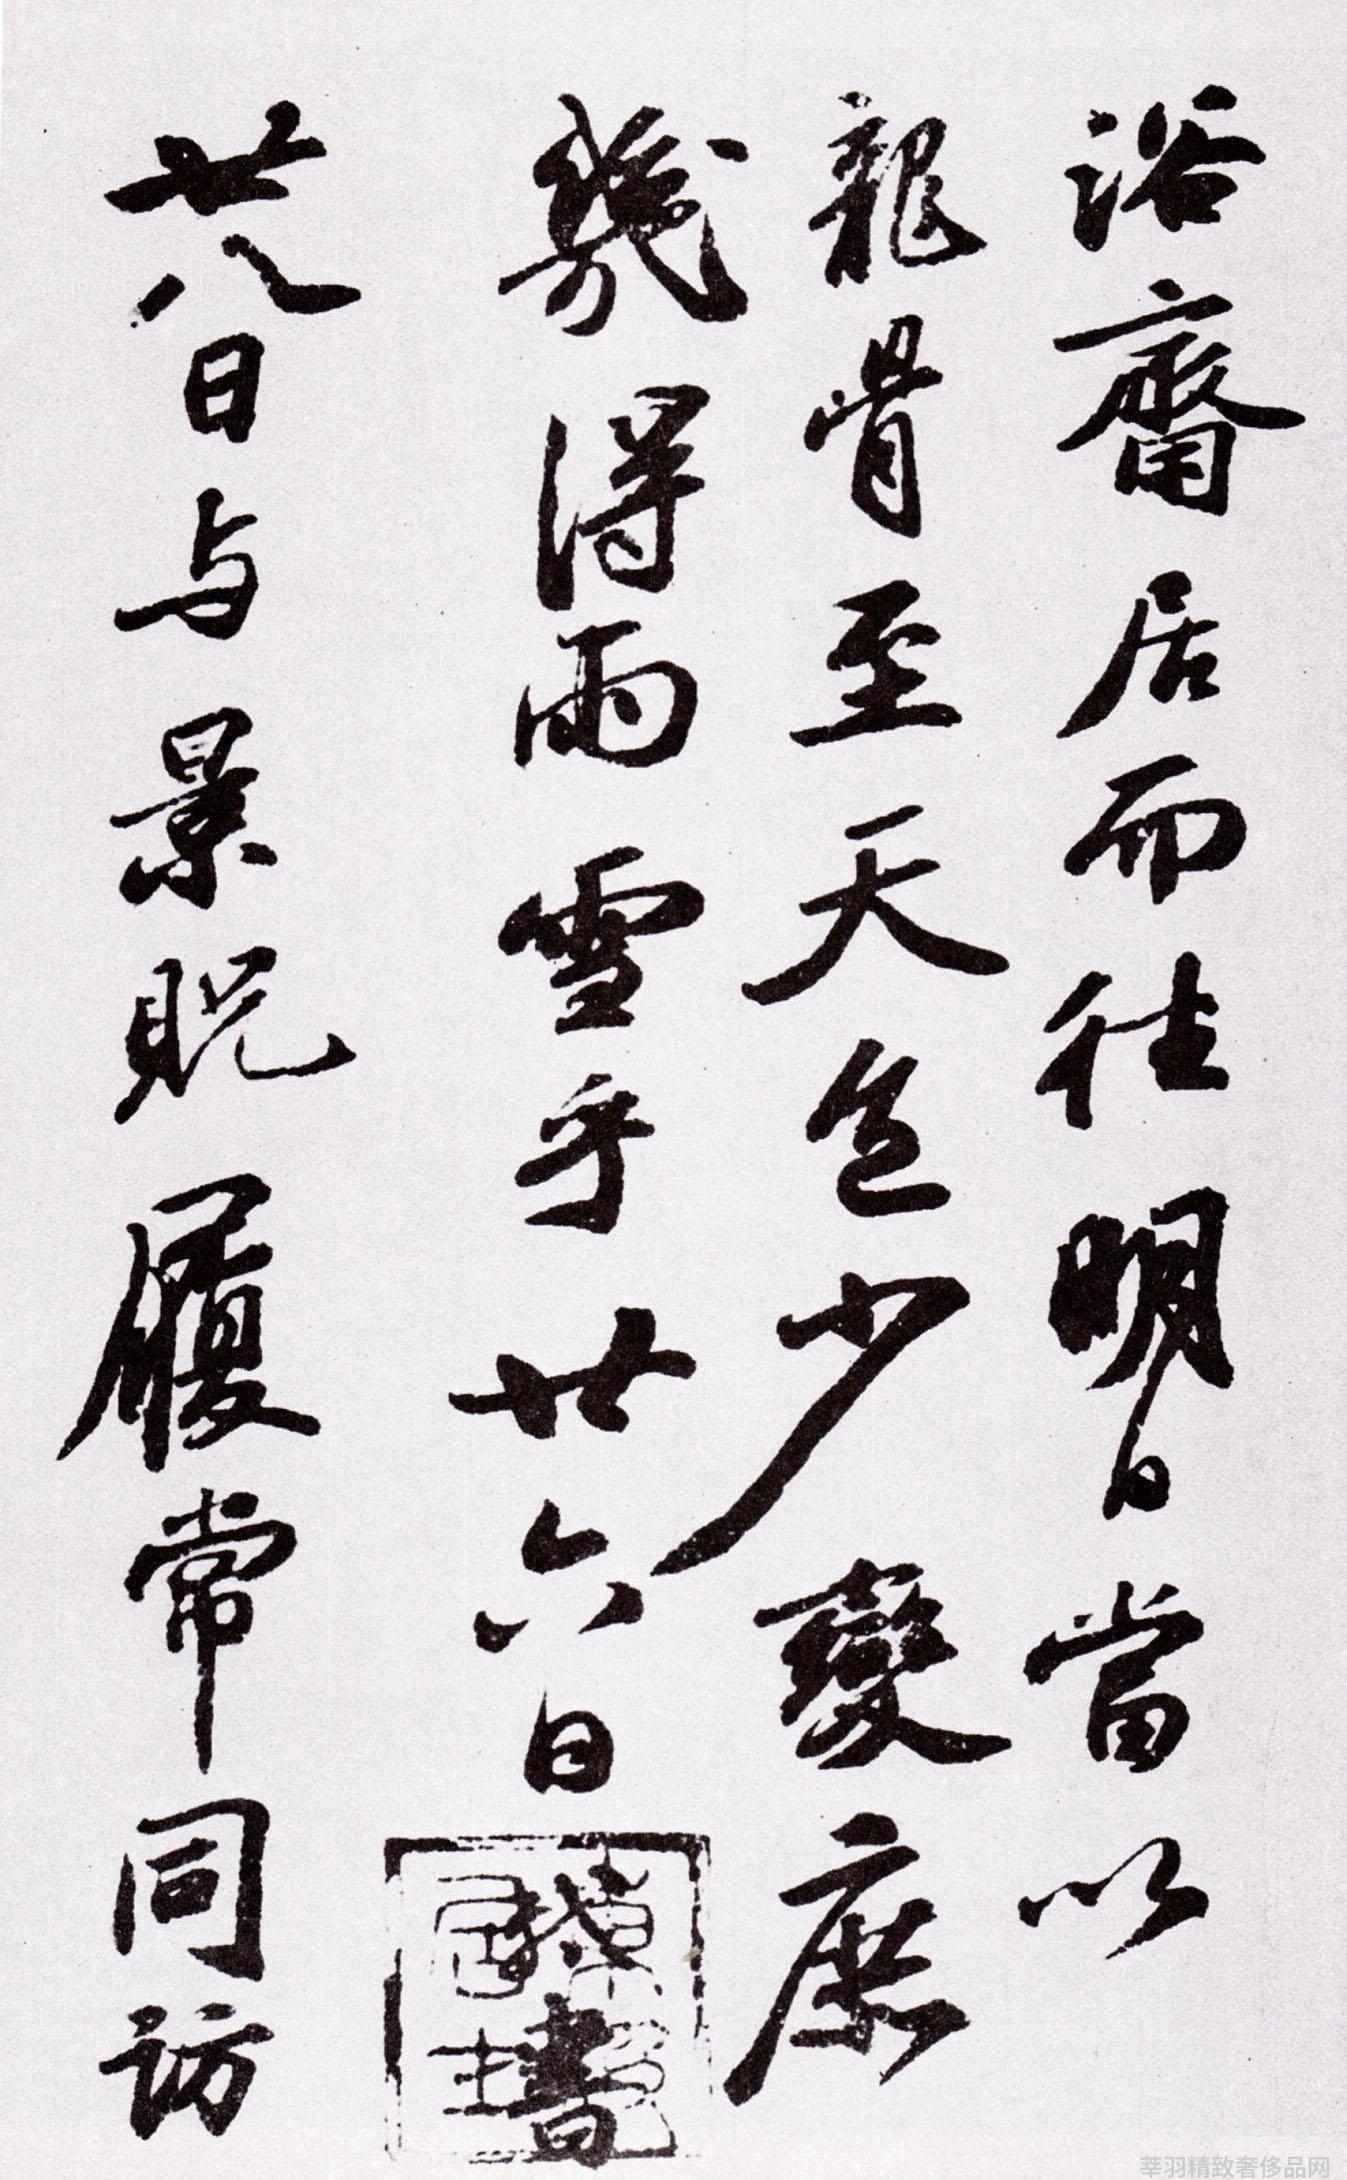 浴齋居而往明日當以
龍骨至天色少變庶
幾得雨雪乎廿六日書
廿八日与景貺履常同訪
莘羽精致奢侈品网